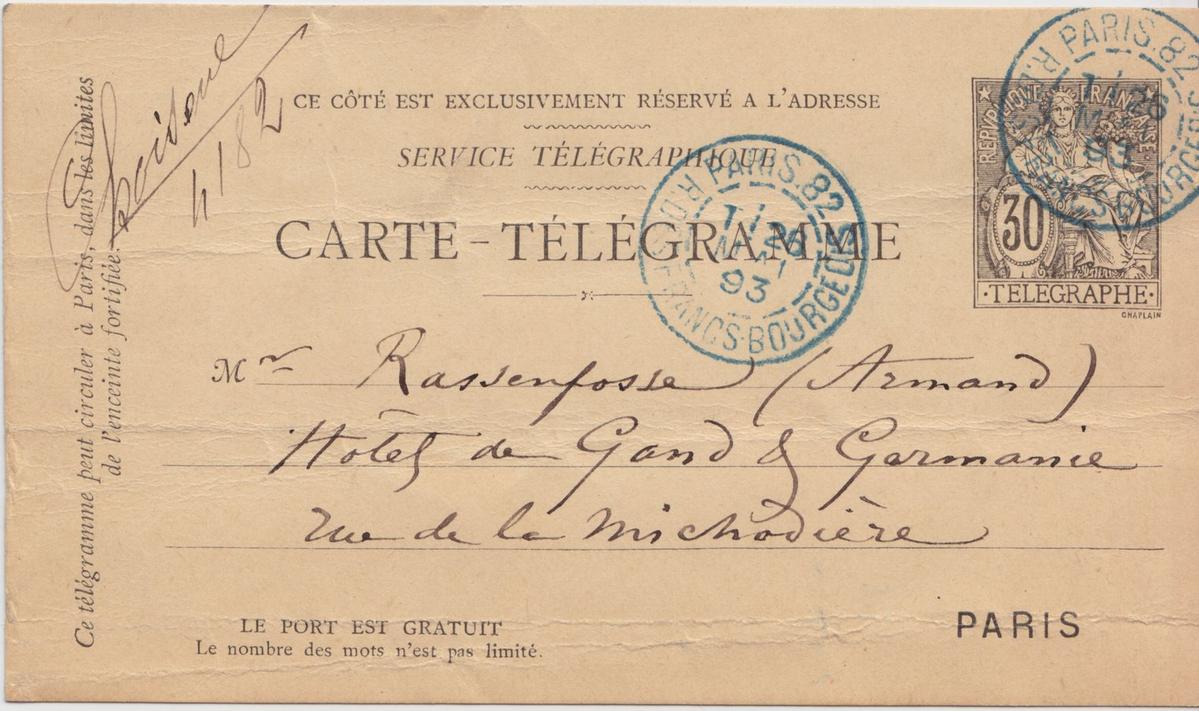 CE CÔTÉ EST EXCLUSIVEMENT RÉSERVÉ A L'ADRESSE
SERVICE TÉLÉGRAPHIQUE
CARTE-TÉLÉGRAMME
Ce télégramme peut circuler à Paris, dans les limites
de l'enceinte fortifiée.
4182
PARIS.82
R.D. FRANCS-BOURGEOIS
MAI
93
PARIS.82
BOURGEOIS
26
93
REPUBLIQUE FRANÇAISE
30
·TELEGRAPHE·
CHAPLAIN
Mr Rassenfosse (Armand)
Hôtel de Gand & Germanie
rue de la Michodière
LE PORT EST GRATUIT
Le nombre des mots n'est pas limité.
PARIS